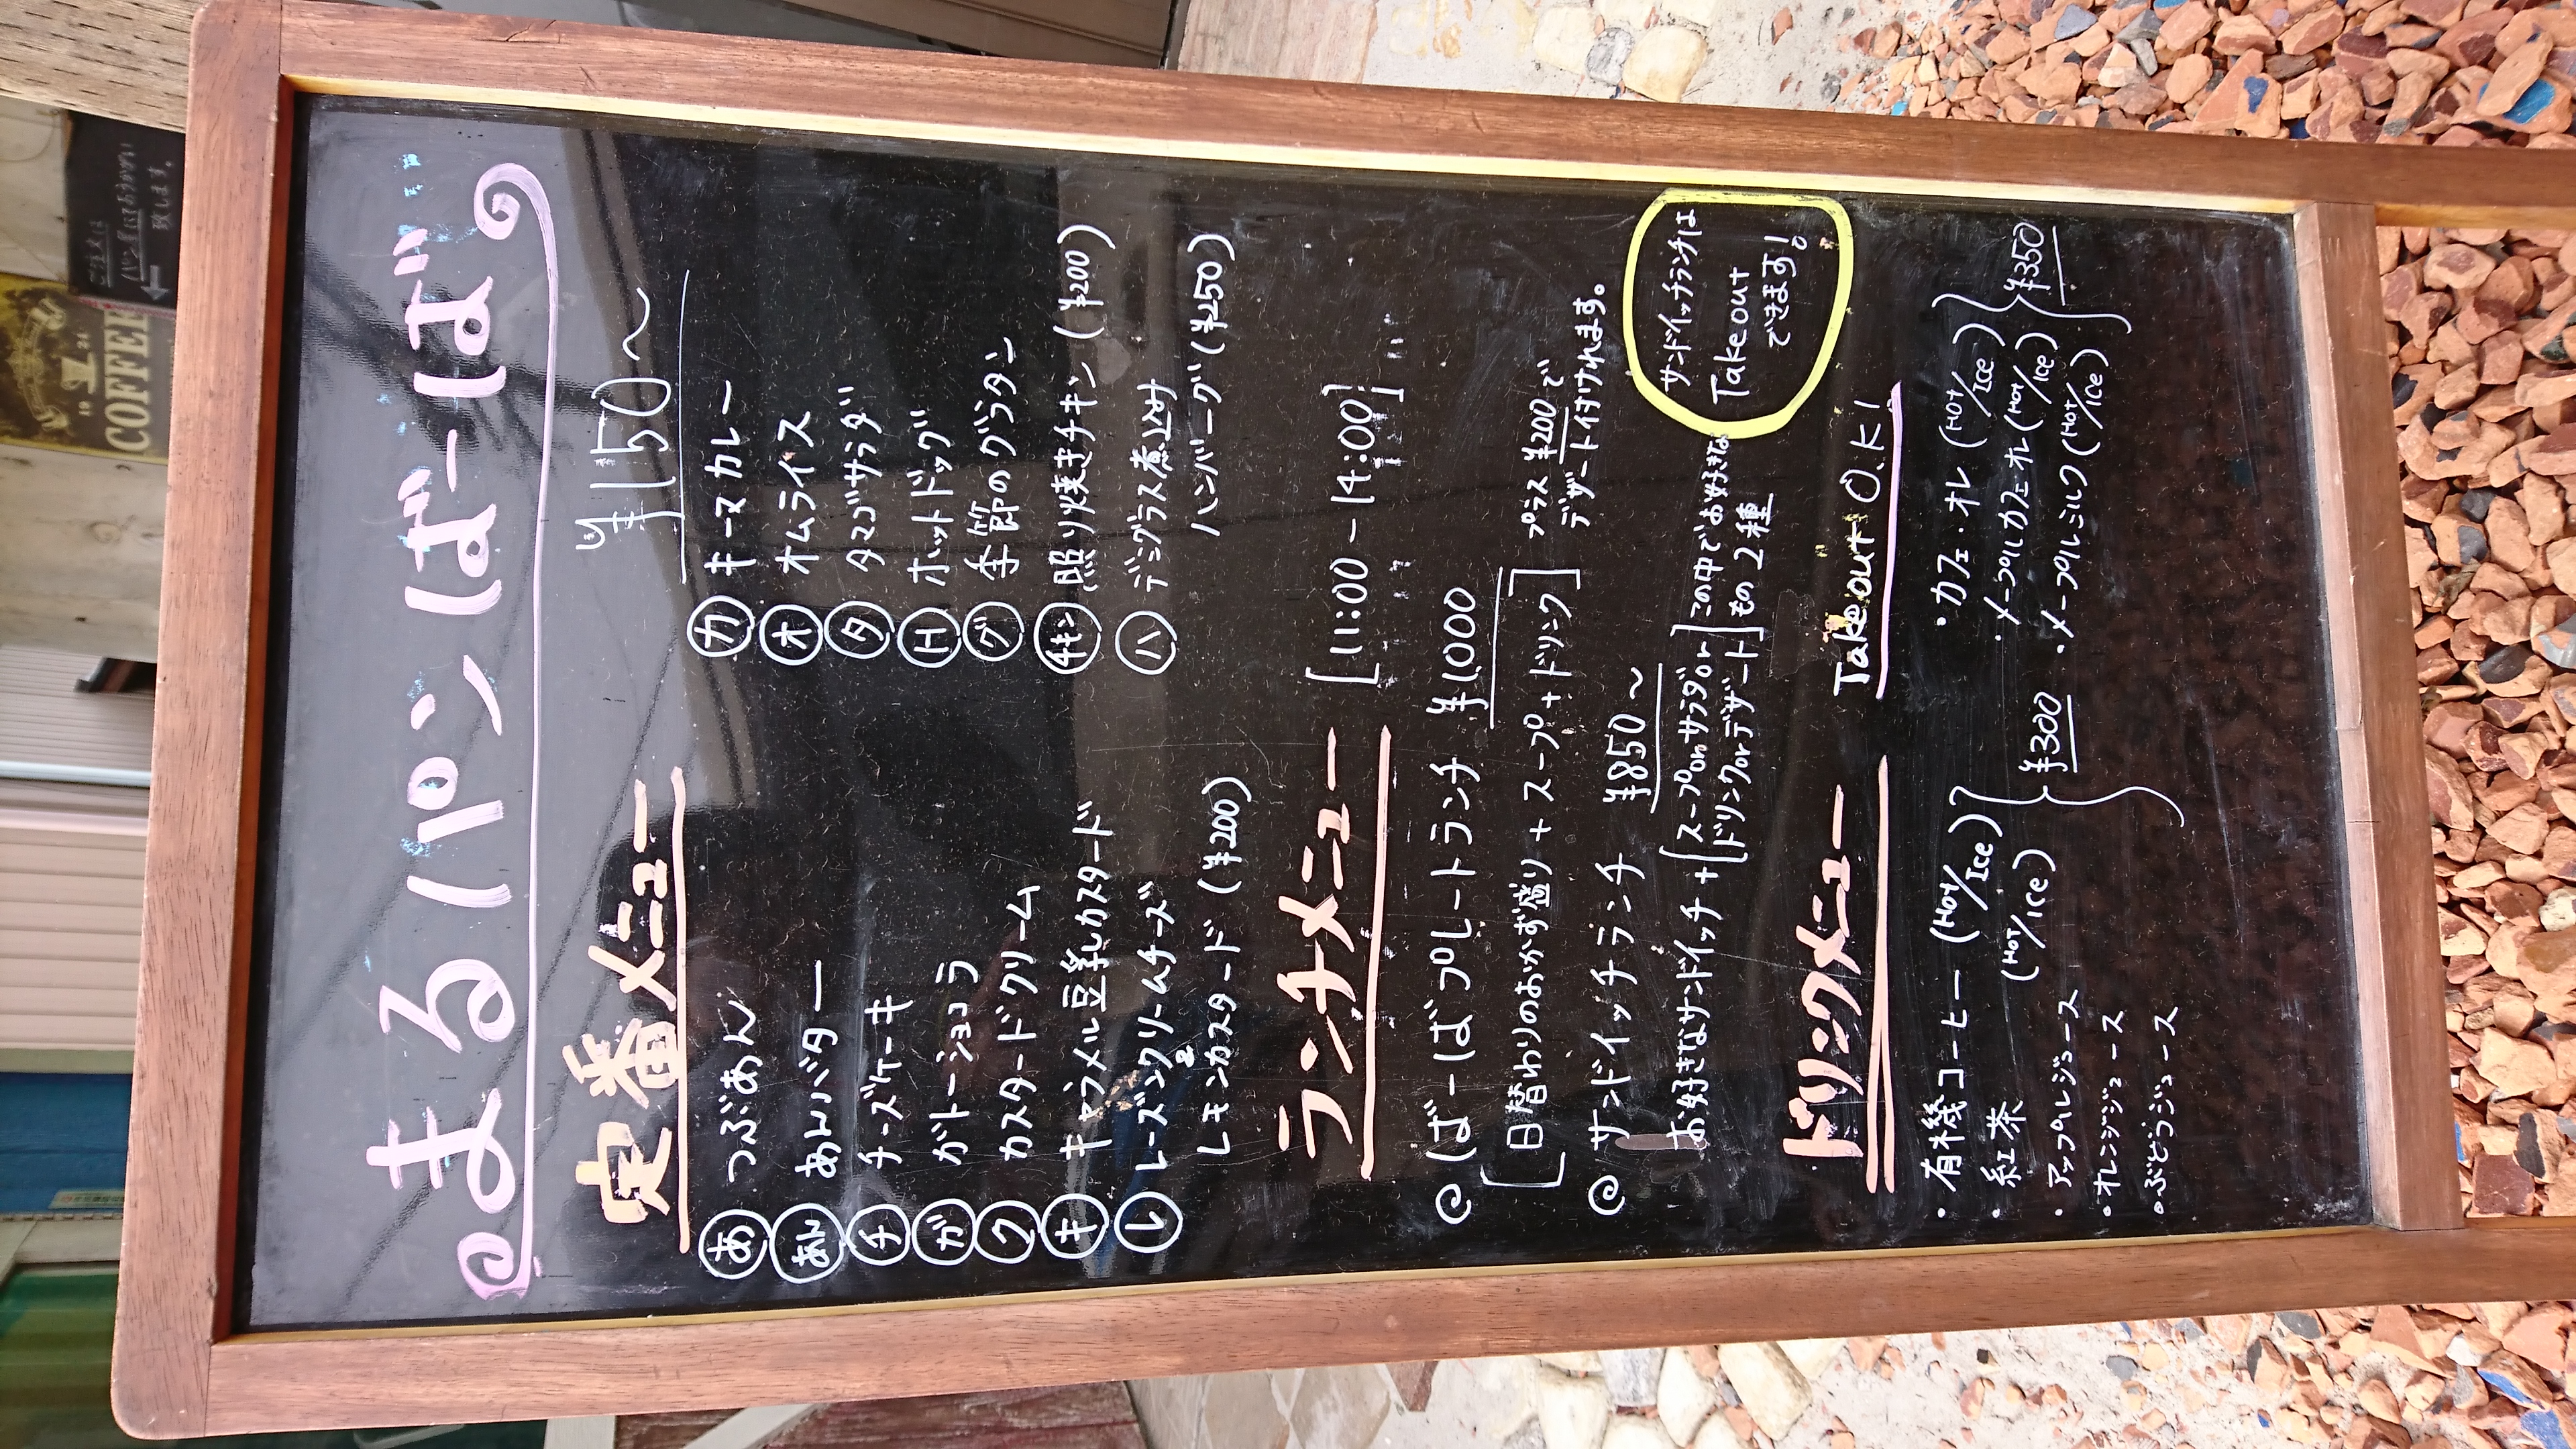 まるパンばーば
定番メニュー ¥150〜
あ つぶあん
あん あんバター
チ チーズケーキ
ガ ガトーショコラ
ク カスタードクリーム
キ キャラメル豆乳カスタード
レ レーズンクリームチーズ
&
レモンカスタード (¥200)
カ キーマカレー
オ オムライス
タ タマゴサラダ
H ホットドッグ
グ 季節のグラタン
チキン 照り焼きチキン (¥200)
ハ デミグラス煮込み
ハンバーグ (¥250)
ランチメニュー [11:00-14:00]
@ ばーばプレートランチ ¥1,000
[日替わりのおかず盛り+スープ+ドリンク]
プラス¥200で
デザート付けれます。
@ サンドイッチランチ ¥850〜
お好きなサンドイッチ+[スープorサラダor
ドリンクorデザート]
この中でお好きな
もの2種
サンドイッチランチは
Take out
できます!
ドリンクメニュー Take out O.K!
・有機コーヒー (HOT/Ice)
・紅茶 (HOT/Ice)
・アップルジュース
・オレンジジュース
・ぶどうジュース
¥300
・カフェ・オレ (HOT/Ice)
・メープルカフェオレ (HOT/Ice)
・メープルミルク (HOT/Ice)
¥350
COFFEE
ご注文は
パン屋にておうかがい
致します。